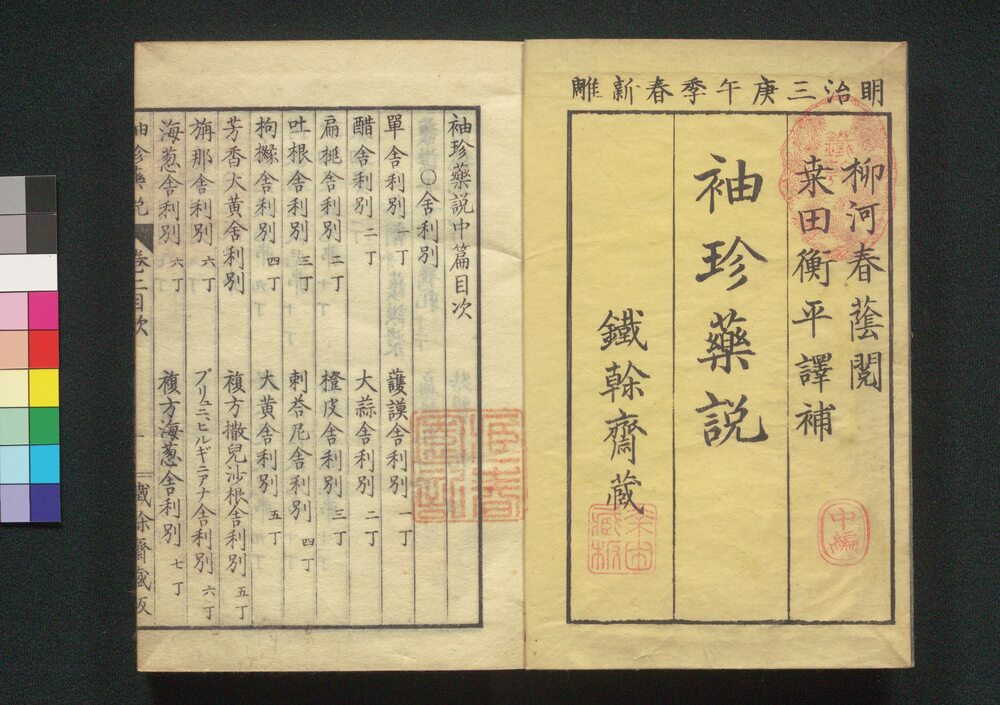 明治三庚午季春新雕
柳河春蔭閲
桒田衡平譯補
袖珍藥説
鐵榦齋蔵
中編
袖珍藥説中篇目次
○舎利別
單舎利別 一丁
護謨舎利別 一丁
醋舎利別 二丁
大蒜舎利別 二丁
扁桃舎利別 二丁
橙皮舎利別 三丁
吐根舎利別 三丁
刺荅尼舎利別 四丁
枸櫞舎利別 四丁
大黄舎利別 五丁
芳香大黄舎利別
複方撒兒沙根舎利別 五丁
旃那舎利別 六丁
プリュニ、ヒルギニアナ舎利別 六丁
海葱舎利別 六丁
複方海葱舎利別 七丁
袖珍藥説 卷二目次 一 鐵榦齋蔵板